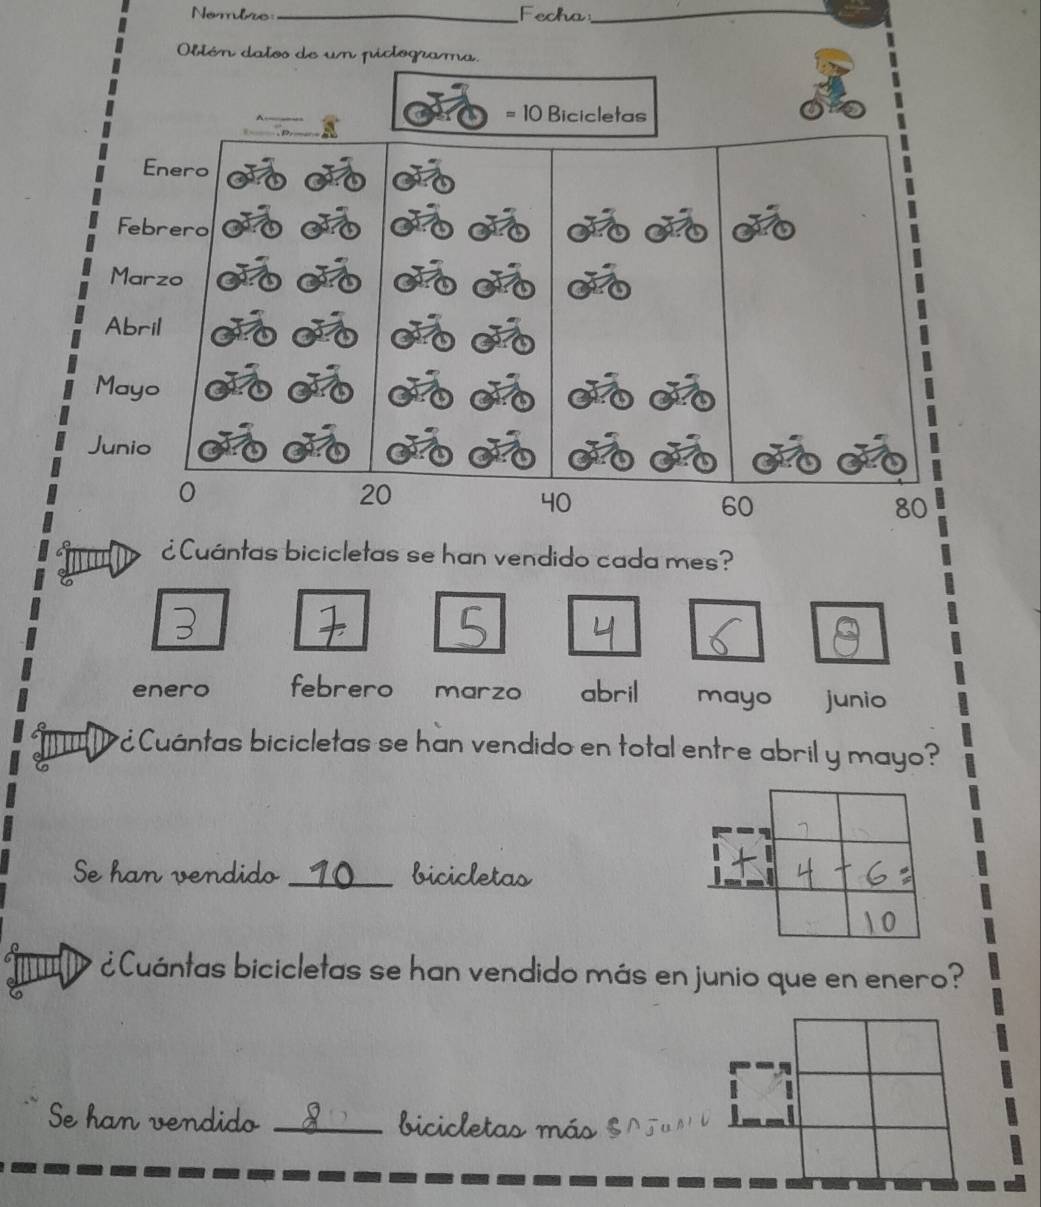 Nombre: Fecha:
Obtén datos de un pictograma.
= 10 Bicicletas
Enero
Febrero
Marzo
Abril
Mayo
Junio
0 20 40 60 80
¿Cuántas bicicletas se han vendido cada mes?
3 7 5 4 6 8
enero febrero marzo abril mayo junio
¿Cuántas bicicletas se han vendido en total entre abril y mayo?
+ 4 + 6 =
Se han vendido 10 bicicletas
10
¿Cuántas bicicletas se han vendido más en junio que en enero?
Se han vendido 8 bicicletas más en junio